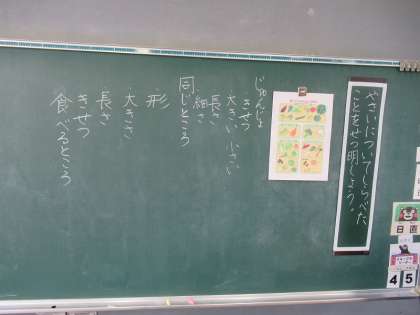 やさいについてしらべた
ことをせつ明しよう。
じゅんじょ
きせつ
大きい小さい
長さ
細さ
同じところ
形
大きさ
長さ
きせつ
食べるところ
日直
4 5